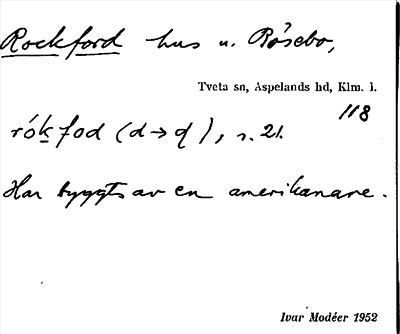 Rockford hus u. Rösebo,
Tveta sn, Aspelands hd, Klm. l.
118
rókfod (d→ɖ), s. 21.
Har byggts av en amerikanare.
Ivar Modéer 1952